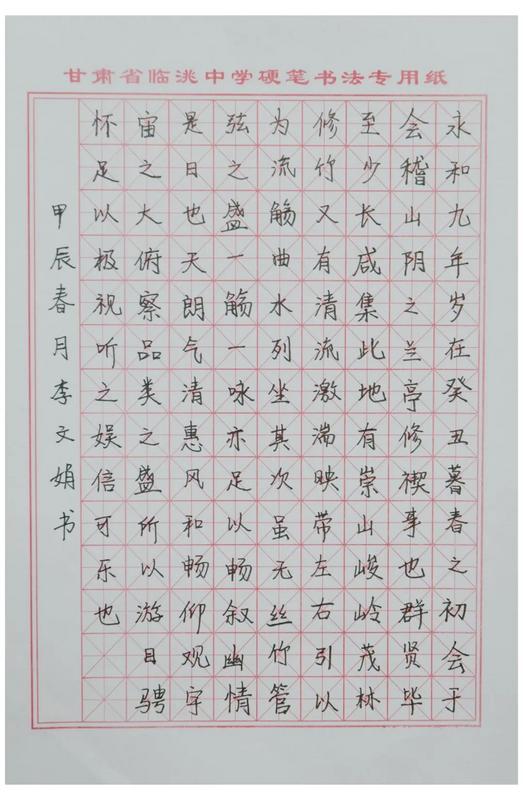 甘肃省临洮中学硬笔书法专用纸
永和九年岁在癸丑暮春之初会于
会稽山阴之兰亭修禊事也群贤毕
至少长咸集此地有崇山峻岭茂林
修竹又有清流激湍映带左右引以
为流觞曲水列坐其次虽无丝竹管
弦之盛一觞一咏亦足以畅叙幽情
是日也天朗气清惠风和畅仰观宇
宙之大俯察品类之盛所以游目骋
怀足以极视听之娱信可乐也
甲辰春月李文娟书